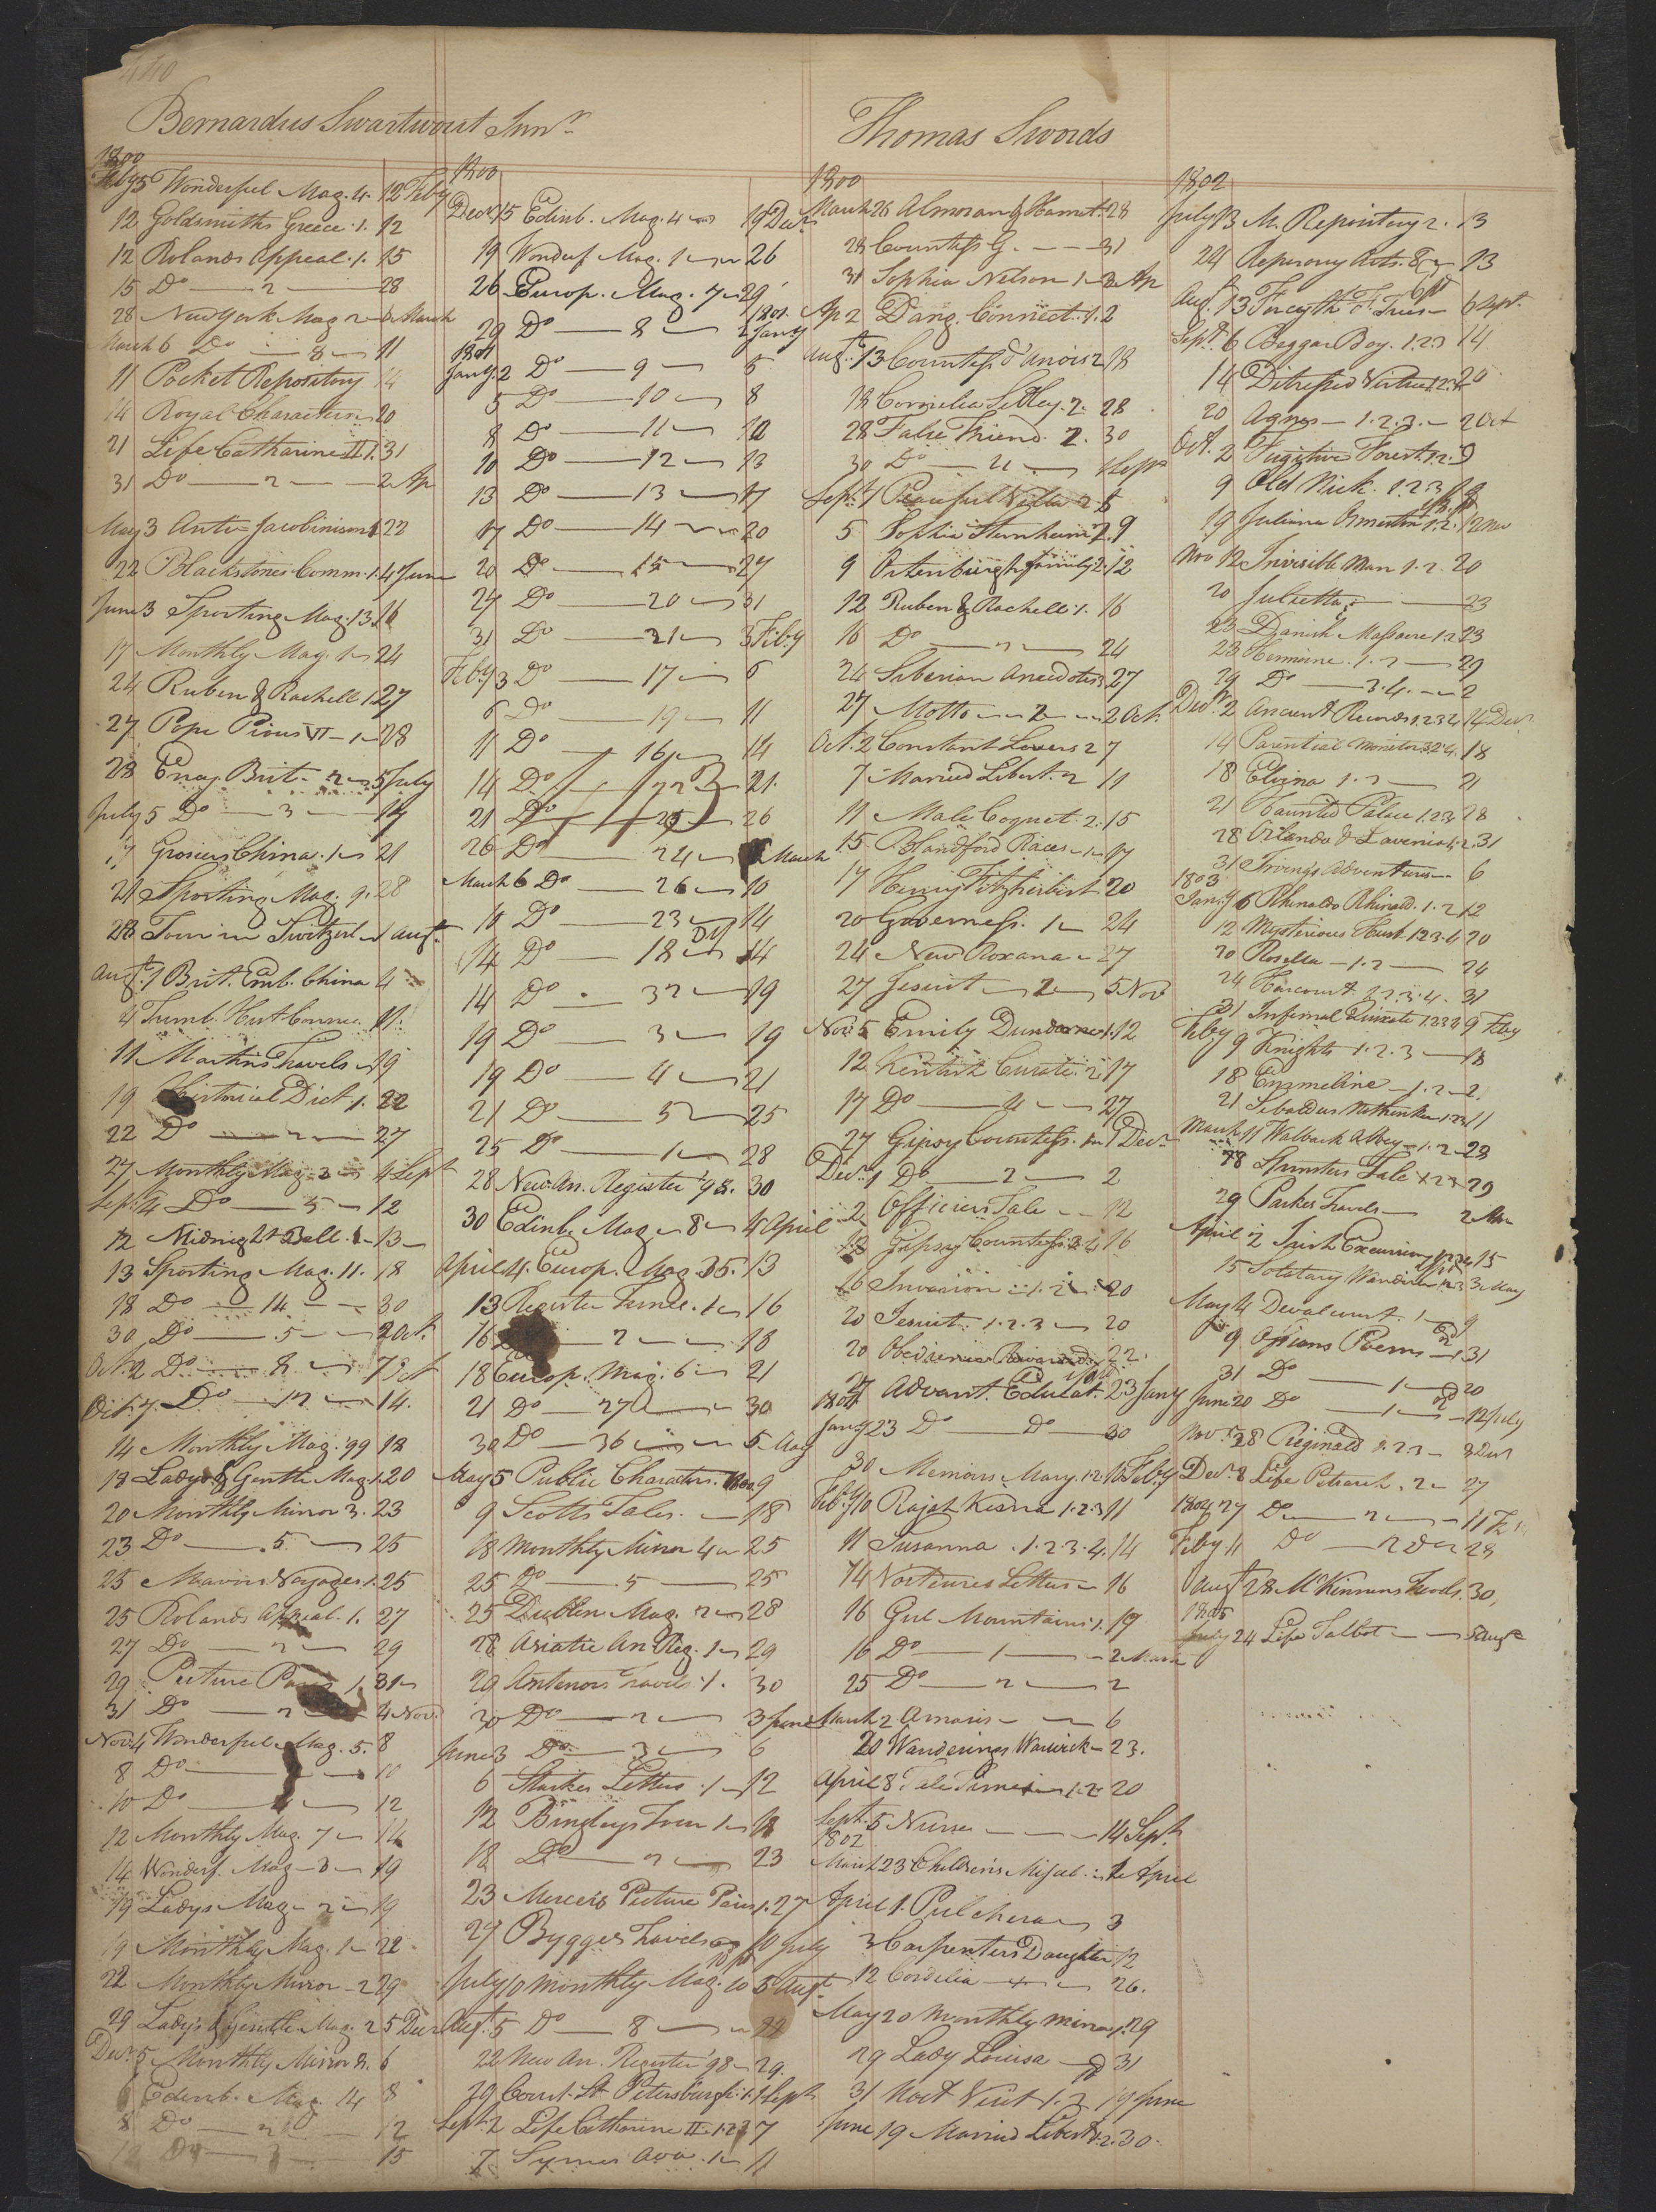 440
Bernardus Swartwout Junr
1800
Feby 5 Wonderful Mag. 4. 12 Feby
12 Goldsmiths Greece. 1. 12
12 Rolands Appeal. 1. 15
15 Do 2 28
28 New York Mag 2 6 March
March 6 Do 8 11
11 Pocket Repository 14
14 Royal Characters 20
21 Life Catharine II 1. 31
31 Do 2 2 Ap
May 3 Anti=Jacobinism 1 22
22 Blackstones Comm. 1. 4 June
June 3 Sporting Mag. 13. 16
17 Monthly Mag. 1 24
24 Ruben & Rachell 1. 27
27 Pope Pious VI 1 28
28 Ency. Brit. 2 5 July
July 5 Do 3 17
17 Grosiers China. 1 21
21 Sporting Mag. 9. 28
28 Tour in Switzerl 1 Augt
Augt 1 Brit. Emb. China 4
4 Tumb. 11.
11 Martins Travels 19
19 Historical Dict. 1. 22
22 Do 2 27
27 Monthly Mag. 3 4 Sept
Sept. 4 Do 5 12
12 Midnight Bell. 1 13
13 Sporting Mag. 11. 18
18 Do 14 30
30 Do 5 2 Oct.
Oct. 2 Do 8 7 Oct
Oct. 7. Do 12 14.
14 Monthly Mag. 99 18
18 Ladys & Gentle Mag. 1. 20
20 Monthly Mirror 3. 23
23 Do 5. 25
25 Mavors Voyages 1. 25
25 Rolands Appeal. 1. 27
27 Do 2 29
29 Picture Paris 1. 31
31 Do 2 4 Nov.
Nov. 4 Wonderful Mag. 5. 8
8 Do 10
10 Do 4 12
12 Monthly Mag. 7 14
14 Wonderf. Mag 3 19
19 Ladys Mag 2 19
19 Monthly Mag. 1 22
22 Monthly Mirror 2 29
29 Ladys & Gentle. Mag. 2 5 Decr
Decr. 5 Monthly Mirror 8. 6
6 Edinb. Mag. 14 8
8 Do 2 12
12 Do 3 15
1800
Decr 15 Edinb. Mag. 4 19 Decr
19 Wonderf Mag. 1 26
26 Europ. Mag. 7 29
29 Do 8 1801. 2 Jany
1801
Jany. 2 Do 9 5
5 Do 10 8
8 Do 11 10
10 Do 12 13
13 Do 13 17
17 Do 14 20
20 Do 15 27
27 Do 20 31
31 Do 21 3 Feby
Feby 3 Do 17 6
6 Do 19 11
11 Do 16 14
14 Do 22 21.
21 Do 25 26
26 Do 24 6 March
March 6 Do 26 10
10 Do 23 14
14 Do 18 14
14 Do 32 19
19 Do 3 19
19 Do 4 21
21 Do 5 25
25 Do 1 28
28 New An. Register '98. 30
30 Edinb. Mag 8 4 April
April 4. Europ. Mag. 35. 13
13 Register 1 16
16 2 18
18 Europ. Mag. 6 21
21 Do 27 30
30 Do 36 5 May
May 5 Public Characters. 1800. 9
9 Scotts Tales. 18
18 Monthly Mirror 4 25
25 Do 5 25
25 Dublin Mag. 2 28
28 Asiatic An Reg. 1 29
29 Antenors Travels. 1. 30
30 Do 2 3 June
June 3 Do 3 6
6 Letters. 1 12
12 Bingleys Tour 1 18
18 Do 2 23
23 Merciers Picture Paris 1. 27
27 Bygges Travels 10 July
July 10 Monthly Mag. 10 5 Augt.
Augt. 5 Do 8 22
22 New An. Register '98 29.
29 Court St. Petersburgh. 1. 1 Sept
Sept. 2 Life Catharine II. 1.2.3 7
7 Symes Ava. 1 11
Thomas Swords
1800
March 26 Almoran & Hamet. 28
28 Countess G. 31
31 Sophia Nelson 1 2 Ap
Ap 2 Dang. Connect. 1. 2
Augt. 13 Countess d'Anois 2 18
18 Cornelia Sedley. 2. 28
28 False Friend. 2. 30
30 Do 1 Sept
Sept. 1 Peaceful Villa 2 5
5 Sophia Sternheim 2. 9
9 Ortenburgh Family 2. 12
12 Ruben & Rachell. 1. 16
16 Do 2 24
24 Siberian Anecdotes 3 27
27 Motto 2 2 Oct.
Oct. 2 Constant Lovers 2 7
7 Married Libert. 2 11
11 Male Coquet. 2. 15
15 Blandford Races 1 17
17 Henry Fitzherbert 20
20 Governess. 1 24
24 New Roxana 27
27 Jesuit 2 5 Nov
Nov. 5 Emily Dundorne 1. 12
12 Kentish Curate. 2. 17
17 Do 4 27
27 Gipsy Countess. 1 1 Decr
Decr. 1 Do 2 2
2 Officers Tale 12
12 Gipsy Countess 3. 4 16
16 Invasion 1. 2 20
20 Jesuit. 1.2.3 20
20 Obedience Rewarded 22.
27 Advant. Educat. 23 Jany
1801
Jany 23 Do Do 30
30 Memoirs Mary. 1.2. 10 Feby
Feby 10 Rajah Kisna 1.2.3 11
11 Susanna. 1.2.3.4. 14
14 Letters 16
16 Gul Mountains 1. 19
16 Do 1 2 March
25 Do 2 2
March 2 Amoris 6
20 Wanderings Warwick 23.
April 8 Tale Times 1.2. 20
Sept. 5 Nurse 14 Sept.
1802
March 23 Childrens 1 April
April 1. Pulchera 3
3 Carpenters Daughter 12
12 Cordelia 26.
May 20 Monthly Mirror 1. 29
29 Lady Louisa 31
31 Noct Visit 1. 2 19 June
June 19 Married Libert. 1.2. 30.
1802
July 13 M. Repository 2. 13
24 Reperory Arts. 8 13
Aug. 13 Forsyth F Trees 6 Sept.
Sept. 6 Beggar Boy. 1.2.3 14
14 Distressed Virtue 1.2.3. 20
20 Agnes 1.2.3. 2 Oct
Oct. 2 Fugitive Forest. 1.2. 9
9 Old Nick. 1.2.3 19
19 Juliana Ormeston 1.2. 12 Nov
Nov 12 Invisible Man 1.2. 20
20 Julietta. 23
23 Danish Massacre 1.2 23
23 Hermione. 1.2 29
29 Do 3.4. 2
Decr. 2 Ancient Records 1.2.3.4 14 Decr
14 Parential Monitor 3.2.4. 18
18 Elvina 1.2 21
21 Haunted Palace 1.2.3 28
28 Orlando & Lavenia 1.2. 31
31 Irvings Adventures 6
1803
Jany 6 Rhinaldo Rhinald. 1.2 12
12 Mysterious Husb 1.2.3.4 20
20 Rosella 1.2 24
24 Harcourt 1.2.3.4. 31
31 Infernal Quixote 1.2.3.4 9 Feby
Feby 9 Knights 1.2.3 18
18 Emmeline 1.2 2.
21 Sebaldus Nothanker 1.2.3 11
March 11 Walbeck Abbey 1.2 23
28 Spinsters Tale 1.2.3 29
29 Parkes Travels
April 2 Irish Excursion 1.2.3.4 15
15 Solitary Wanderer 1.2.3 3 May
May 4 Devalcourt. 1 9
9 Ossians Poems 1 31
31 Do 1 20
June 20 Do 1 12 July
Nov. 28 Reginald 1.2.3 8 Decr
Decr. 8 Life Petrarch. 2 27
1804 27 Do 2 11 F
Feby 11 Do 28
Augt 28 McKinnens Twods. 30.
1805
July 24 Life Talbot 5 Augt